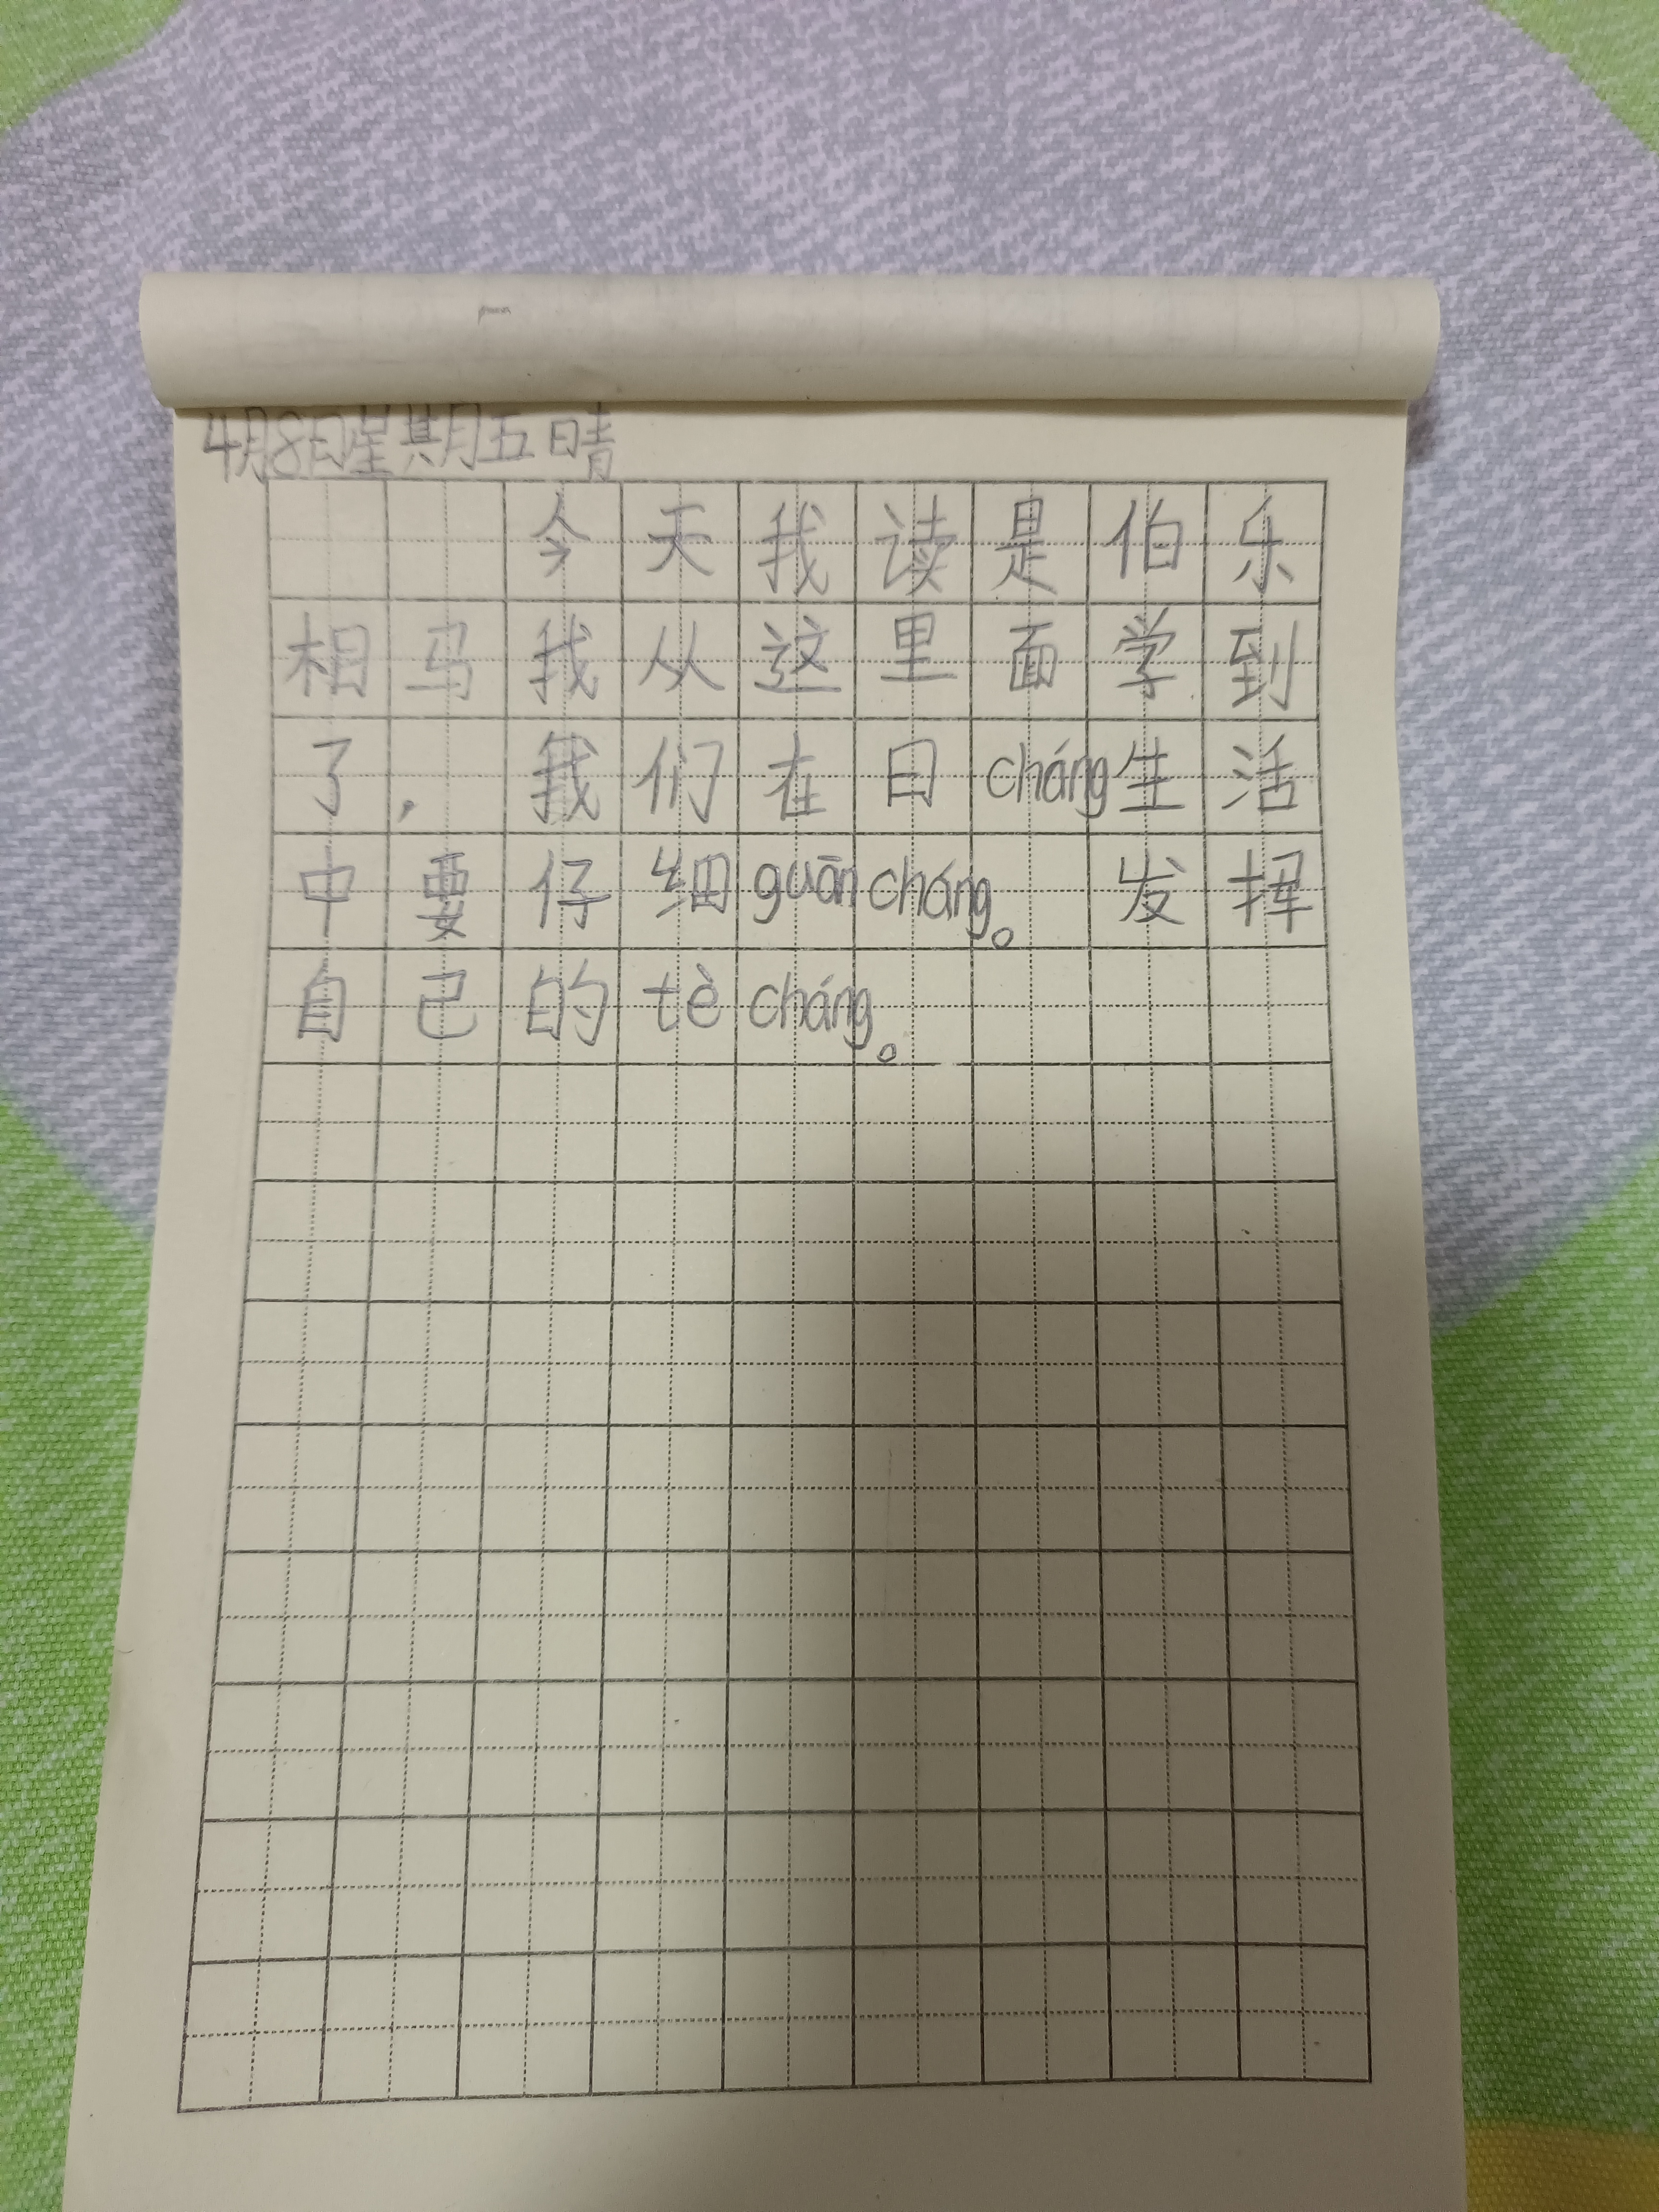 4月8日星期五晴
今天我读是伯乐
相马我从这里面学到
了，我们在日cháng生活
中要仔细guān cháng。发挥
自己的tè cháng。